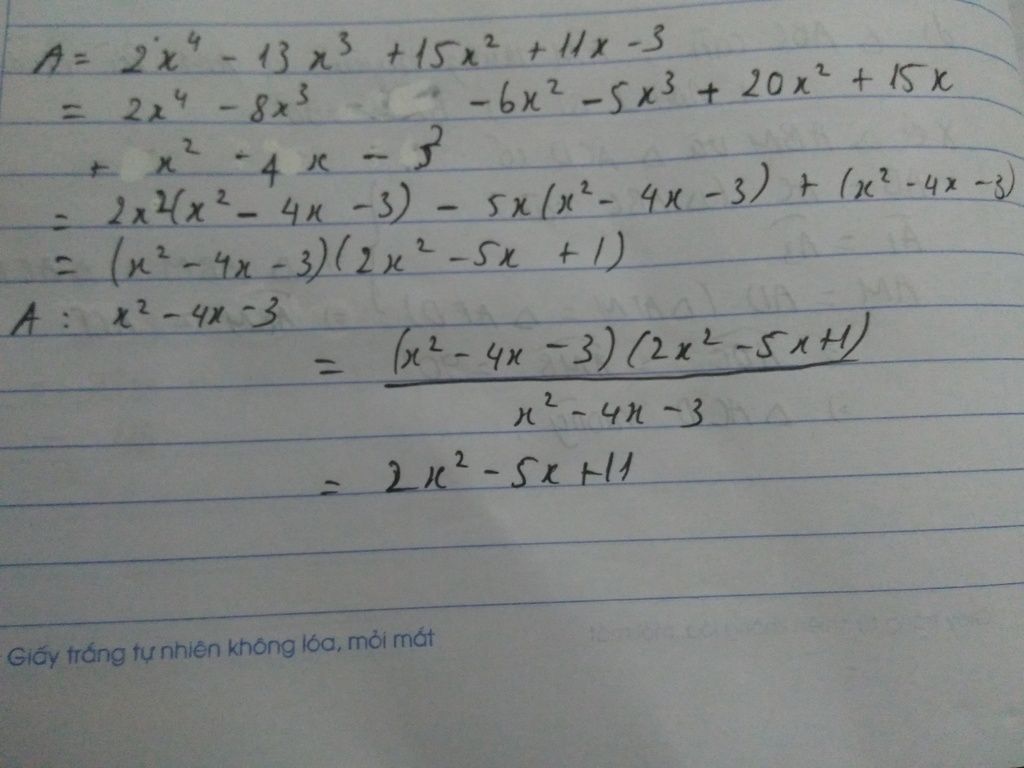 A = 2x⁴ - 13x³ + 15x² + 11x - 3
= 2x⁴ - 8x³ - 6x² - 5x³ + 20x² + 15x
+ x² - 4x - 3
= 2x²(x² - 4x - 3) - 5x(x² - 4x - 3) + (x² - 4x - 3)
= (x² - 4x - 3)(2x² - 5x + 1)
A : x² - 4x - 3
= (x² - 4x - 3)(2x² - 5x + 1)
x² - 4x - 3
= 2x² - 5x + 11
Giấy trắng tự nhiên không lóa, mỏi mắt